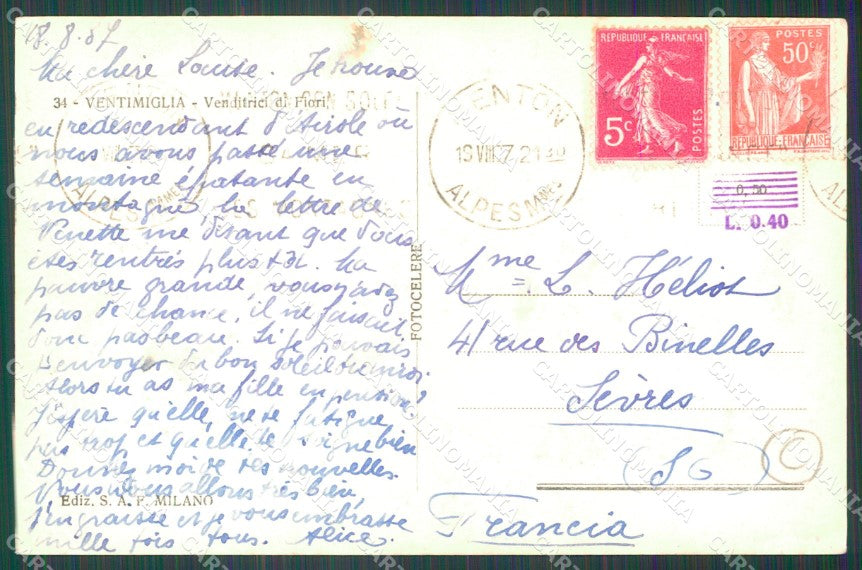 18.8.37
Ma chère Louise. Je trouve
34 - VENTIMIGLIA - Venditrici di Fiori
en redescendant d'Airole où
nous avons passé une
semaine épatante en
montagne, la lettre de
Pinette me disant que vous
êtes rentrés plus tôt. Ma
pauvre grande, vous n'avez
pas de chance, il ne faisait
donc pas beau. Si je pouvais
t'envoyer du bon soleil
Alors tu as ma fille en pension?
J'espère qu'elle ne te fatigue
pas trop et qu'elle te soigne bien
Donnez moi de tes nouvelles.
Nous nous allons très bien,
Ediz. S. A. F. MILANO
j'engraisse et je vous embrasse
mille fois tous. Alice.
FOTOCELERE
MENTON
19 VIII 37 21
ALPES MMES
REPUBLIQUE FRANÇAISE
5c
POSTES
POSTES
50c
REPUBLIQUE FRANÇAISE
0,50
L. 0.40
Mme L. Héliot
41 rue des Binelles
Sèvres
(SO)
Francia
CARTOLINOMANIA